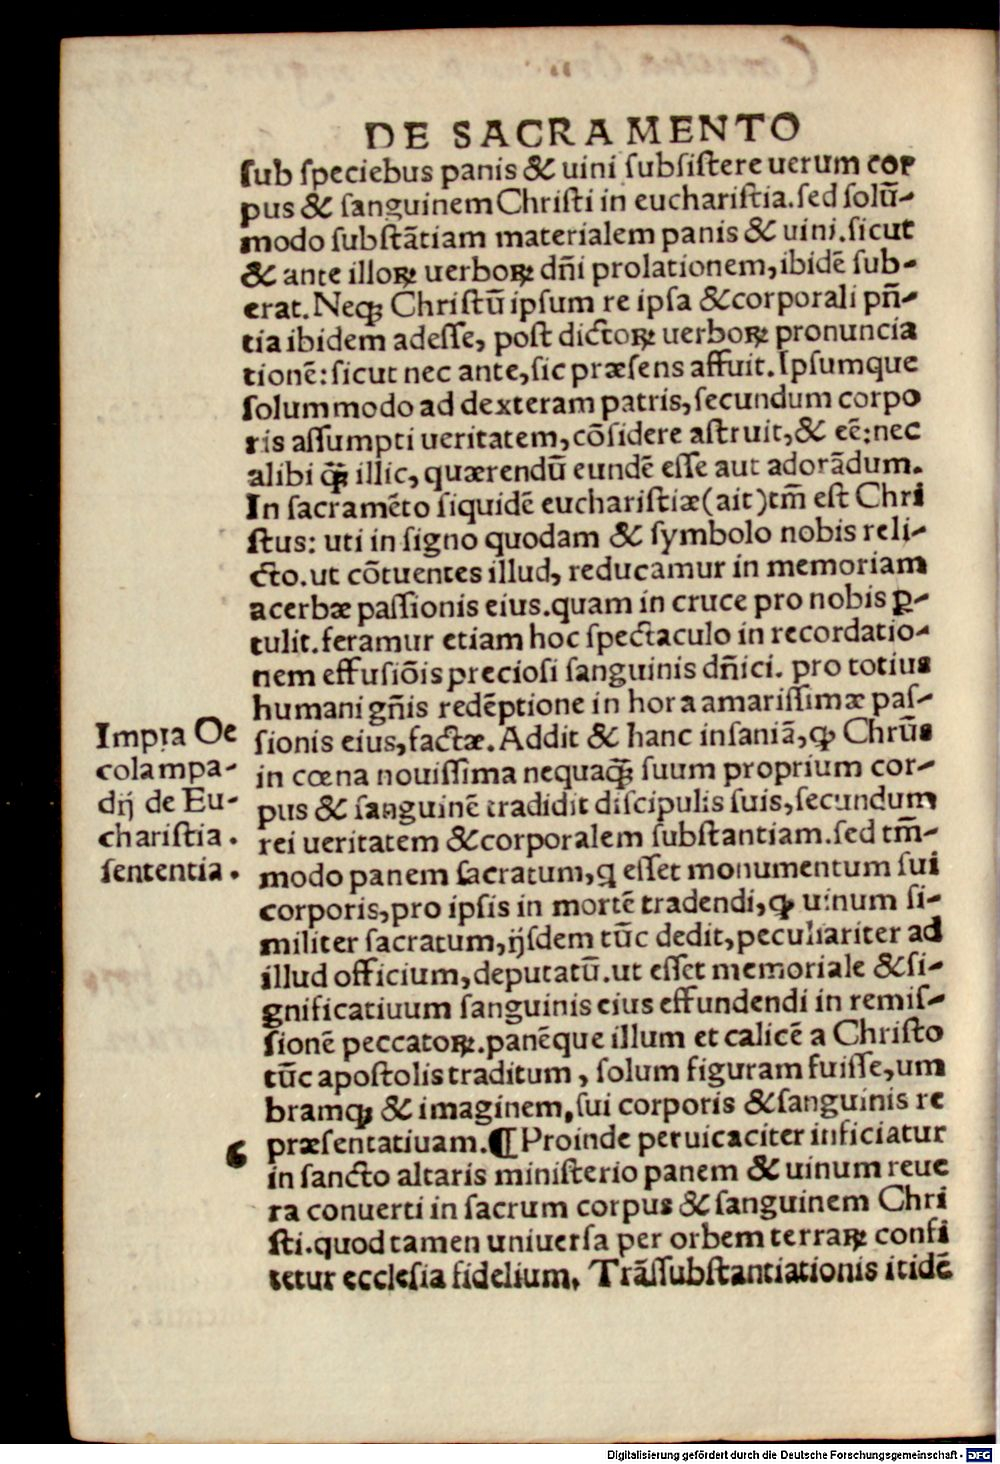 DE SACRAMENTO
ſub ſpeciebus panis & uini ſubſiſtere uerum cor
pus & ſanguinem Chriſti in euchariſtia. ſed ſolū-
modo ſubſtātiam materialem panis & uini. ſicut
& ante illoꝝ uerboꝝ dñi prolationem, ibidē ſub-
erat. Neqꝫ Chriſtū ipſum re ipſa & corporali pñ-
tia ibidem adeſſe, poſt dictoꝝ uerboꝝ pronuncia
tionē: ſicut nec ante, ſic præſens affuit. Ipſumque
ſolummodo ad dexteram patris, ſecundum corpo
ris aſſumpti ueritatem, cōſidere aſtruit, & eē: nec
alibi q̄ꝫ illic, quærendū eundē eſſe aut adorādum.
In ſacramēto ſiquidē euchariſtiæ (ait) tm̄ eſt Chri
ſtus: uti in ſigno quodam & ſymbolo nobis reli-
cto. ut cōtuentes illud, reducamur in memoriam
acerbæ paſſionis eius. quam in cruce pro nobis ꝑ-
tulit. feramur etiam hoc ſpectaculo in recordatio-
nem effuſiōis precioſi ſanguinis dñici. pro totius
humani gñis redēptione in hora amariſſimæ paſ-
ſionis eius, factæ. Addit & hanc inſaniā, ꝙ Chrūs
in cœna nouiſſima nequaq̄ꝫ ſuum proprium cor-
pus & ſanguinē tradidit diſcipulis ſuis, ſecundum
rei ueritatem & corporalem ſubſtantiam. ſed tm̄-
modo panem ſacratum, q eſſet monumentum ſui
corporis, pro ipſis in mortē tradendi, ꝙ uinum ſi-
militer ſacratum, ijſdem tūc dedit, peculiariter ad
illud officium, deputatū. ut eſſet memoriale & ſi-
gnificatiuum ſanguinis eius effundendi in remiſ-
ſionē peccatoꝝ. panēque illum et calicē a Chriſto
tūc apoſtolis traditum, ſolum figuram fuiſſe, um
bramqꝫ & imaginem, ſui corporis & ſanguinis re
præſentatiuam. ¶ Proinde peruicaciter inficiatur
in ſancto altaris miniſterio panem & uinum reue
ra conuerti in ſacrum corpus & ſanguinem Chri
ſti. quod tamen uniuerſa per orbem terraꝝ confi
tetur eccleſia fidelium. Trāſſubſtantiationis itidē
Impia Oe
colampa-
dij de Eu-
chariſtia.
ſententia.
6
Digitalisierung gefördert durch die Deutsche Forschungsgemeinschaft - DFG